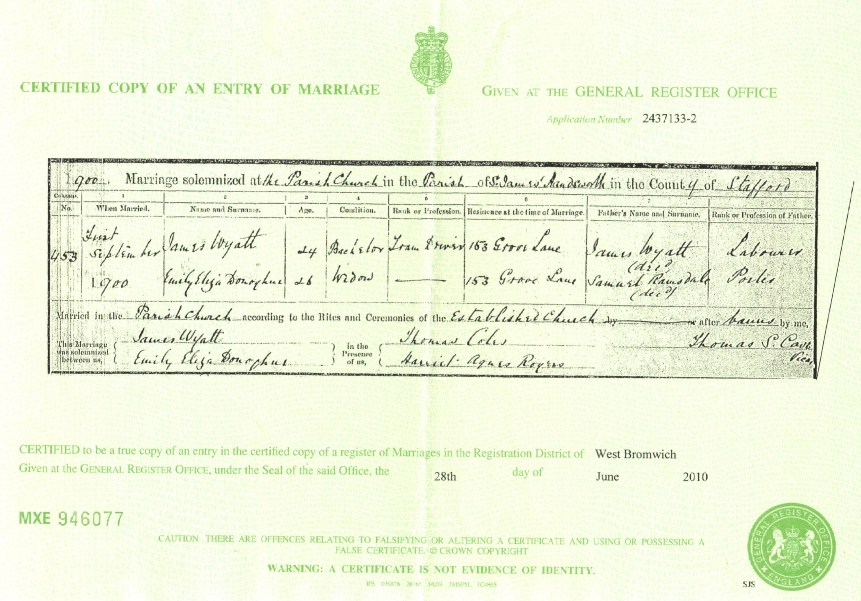 CERTIFIED COPY OF AN ENTRY OF MARRIAGE
GIVEN AT THE GENERAL REGISTER OFFICE
Application Number 2437133-2
1900. Marriage solemnized at the Parish Church in the Parish of St. James' Handsworth in the County of Stafford
No. When Married. Name and Surname. Age. Condition. Rank or Profession. Residence at the time of Marriage. Father's Name and Surname. Rank or Profession of Father.
453 First September 1900
James Wyatt 24 Bachelor Tram Driver 153 Grove Lane James Wyatt (dec'd) Labourer
Emily Eliza Donoghue 26 Widow —— 153 Grove Lane Samuel Ramsdale (dec'd) Porter
Married in the Parish Church according to the Rites and Ceremonies of the Established Church by or after banns by me,
This Marriage was solemnized between us, James Wyatt
Emily Eliza Donoghue
in the Presence of us, Thomas Coles
Harriet Agnes Rogers
Thomas S.
Vicar
CERTIFIED to be a true copy of an entry in the certified copy of a register of Marriages in the Registration District of West Bromwich
Given at the GENERAL REGISTER OFFICE, under the Seal of the said Office, the 28th day of June 2010
MXE 946077
CAUTION: THERE ARE OFFENCES RELATING TO FALSIFYING OR ALTERING A CERTIFICATE AND USING OR POSSESSING A
FALSE CERTIFICATE. © CROWN COPYRIGHT
WARNING: A CERTIFICATE IS NOT EVIDENCE OF IDENTITY.
GENERAL REGISTER OFFICE
ENGLAND
SJS